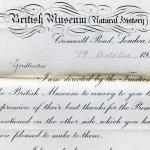 British Museum (Natural History)
Cromwell Road, London,
1st October, 19
Gentlemen
I am directed by the Trustees
the British Museum to convey to you the
expression of their best thanks for the Present
mentioned on the other side, which you have
been pleased to make to them.